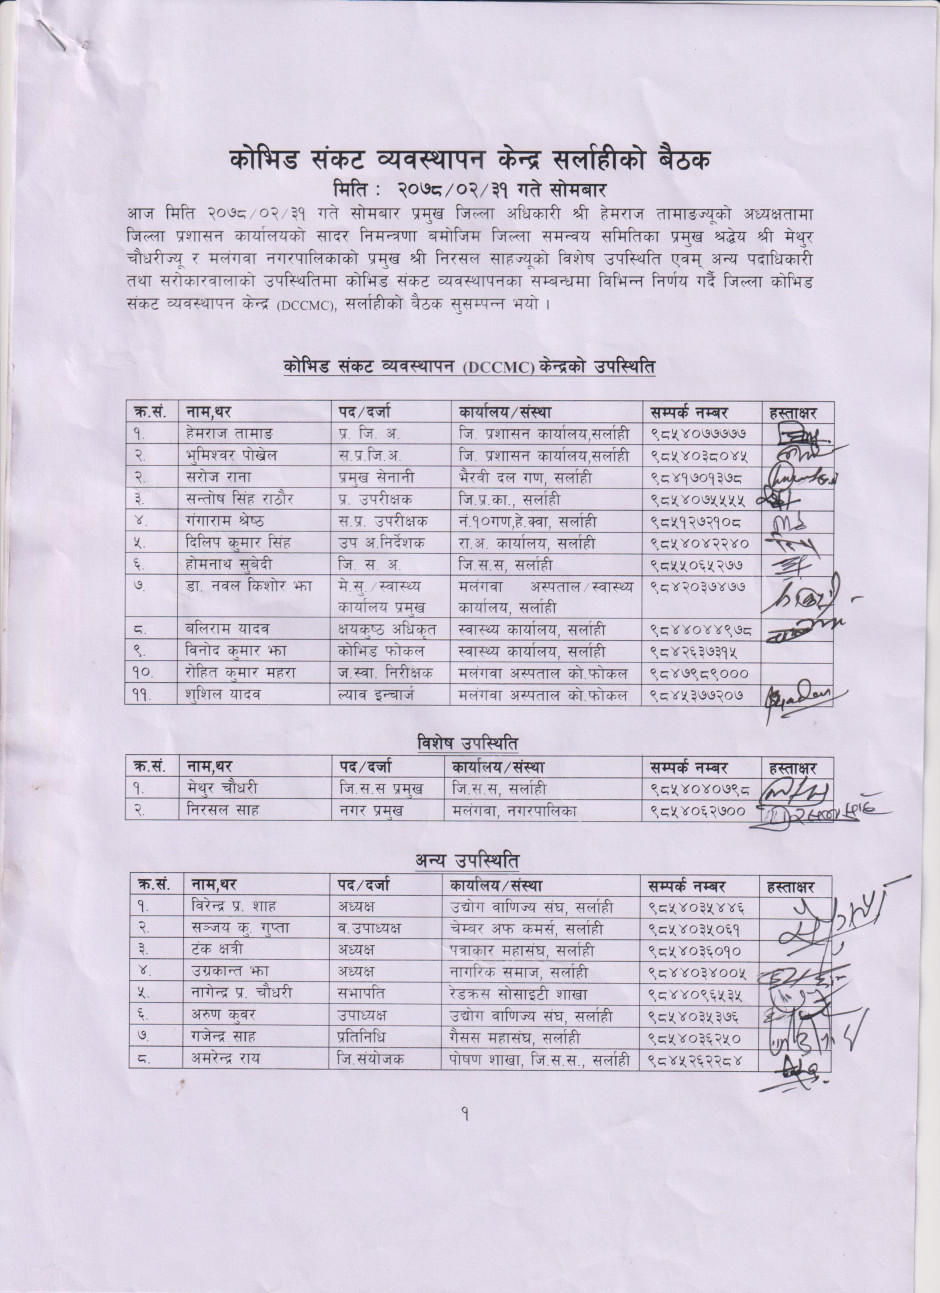 कोभिड संकट व्यवस्थापन केन्द्र सर्लाहीको बैठक
मिति : २०७८/०२/३१ गते सोमबार
आज मिति २०७८/०२/३१ गते सोमबार प्रमुख जिल्ला अधिकारी श्री हेमराज तामाङज्यूको अध्यक्षतामा
जिल्ला प्रशासन कार्यालयको सादर निमन्त्रणा बमोजिम जिल्ला समन्वय समितिका प्रमुख श्रद्धेय श्री मेथुर
चौधरीज्यू र मलंगवा नगरपालिकाको प्रमुख श्री निरसल साहज्यूको विशेष उपस्थिति एवम् अन्य पदाधिकारी
तथा सरोकारवालाको उपस्थितिमा कोभिड संकट व्यवस्थापनका सम्बन्धमा विभिन्न निर्णय गर्दै जिल्ला कोभिड
संकट व्यवस्थापन केन्द्र (DCCMC), सर्लाहीको बैठक सुसम्पन्न भयो ।
कोभिड संकट व्यवस्थापन (DCCMC) केन्द्रको उपस्थिति
क्र.सं. नाम,थर पद/दर्जा कार्यालय/संस्था सम्पर्क नम्बर हस्ताक्षर
१. हेमराज तामाङ प्र. जि. अ. जि. प्रशासन कार्यालय,सर्लाही ९८५४०७७७७७
२. भुमिश्वर पोखेल स.प्र.जि.अ. जि. प्रशासन कार्यालय,सर्लाही ९८५४०३८०४५
२. सरोज राना प्रमुख सेनानी भैरवी दल गण, सर्लाही ९८४१७०१३७८
३. सन्तोष सिंह राठौर प्र. उपरीक्षक जि.प्र.का., सर्लाही ९८५४०७५५५५
४. गंगाराम श्रेष्ठ स.प्र. उपरीक्षक नं.१०गण,हे.क्वा, सर्लाही ९८५१२७२१०८
५. दिलिप कुमार सिंह उप अ.निर्देशक रा.अ. कार्यालय, सर्लाही ९८५४०४२२४०
६. होमनाथ सुबेदी जि. स. अ. जि.स.स, सर्लाही ९८५५०६५२७७
७. डा. नवल किशोर झा मे.सु./स्वास्थ्य मलंगवा अस्पताल/स्वास्थ्य ९८४२०३७४७७
कार्यालय प्रमुख कार्यालय, सर्लाही
८. बलिराम यादव क्षयकुष्ठ अधिकृत स्वास्थ्य कार्यालय, सर्लाही ९८४४०४४९७८
९. विनोद कुमार झा कोभिड फोकल स्वास्थ्य कार्यालय, सर्लाही ९८४२६३७३१५
१०. रोहित कुमार महरा ज.स्वा. निरीक्षक मलंगवा अस्पताल को.फोकल ९८४७९८९०००
११. शुशिल यादव ल्याव इन्चार्ज मलंगवा अस्पताल को.फोकल ९८४५३७७२०७
विशेष उपस्थिति
क्र.सं. नाम,थर पद/दर्जा कार्यालय/संस्था सम्पर्क नम्बर हस्ताक्षर
१. मेथुर चौधरी जि.स.स प्रमुख जि.स.स, सर्लाही ९८५४०४०७९८
२. निरसल साह नगर प्रमुख मलंगवा, नगरपालिका ९८५४०६२७००
अन्य उपस्थिति
क्र.सं. नाम,थर पद/दर्जा कार्यालय/संस्था सम्पर्क नम्बर हस्ताक्षर
१. विरेन्द्र प्र. शाह अध्यक्ष उद्योग वाणिज्य संघ, सर्लाही ९८५४०३५४४६
२. सञ्जय कु. गुप्ता व.उपाध्यक्ष चेम्बर अफ कमर्स, सर्लाही ९८५४०३५०६१
३. टंक क्षत्री अध्यक्ष पत्राकार महासंघ, सर्लाही ९८५४०३६०१०
४. उग्रकान्त झा अध्यक्ष नागरिक समाज, सर्लाही ९८४४०३४००५
५. नागेन्द्र प्र. चौधरी सभापति रेडक्रस सोसाइटी शाखा ९८४४०९६५३५
६. अरुण कुवर उपाध्यक्ष उद्योग वाणिज्य संघ, सर्लाही ९८५४०३५३७६
७. गजेन्द्र साह प्रतिनिधि गैसस महासंघ, सर्लाही ९८५४०३६२५०
८. अमरेन्द्र राय जि.संयोजक पोषण शाखा, जि.स.स., सर्लाही ९८४५२६२२८४
१